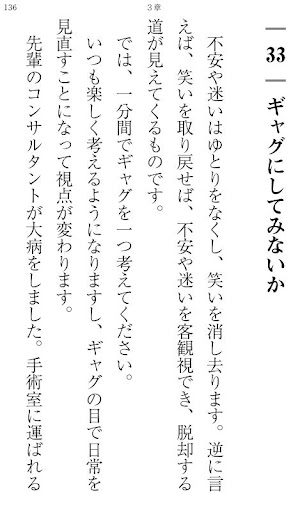 136
3章
33 ギャグにしてみないか
不安や迷いはゆとりをなくし、笑いを消し去ります。逆に言
えば、笑いを取り戻せば、不安や迷いを客観視でき、脱却する
道が見えてくるものです。
では、一分間でギャグを一つ考えてください。
いつも楽しく考えるようになりますし、ギャグの目で日常を
見直すことになって視点が変わります。
先輩のコンサルタントが大病をしました。手術室に運ばれる